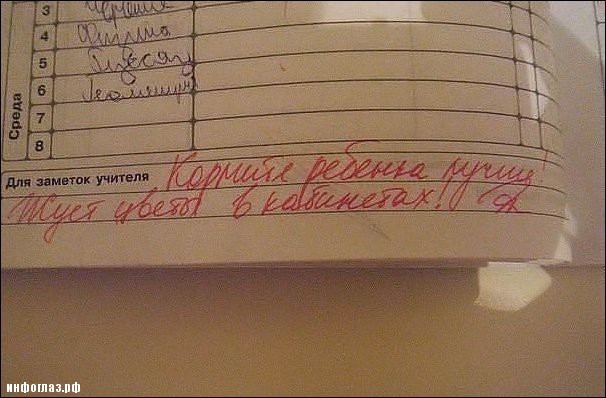 3 Черчение
4 Физика
5
6 Геометрия
7
8
Среда
Для заметок учителя Кормите ребенка лучше!
Жует цветы в кабинетах!
инфоглаз.рф